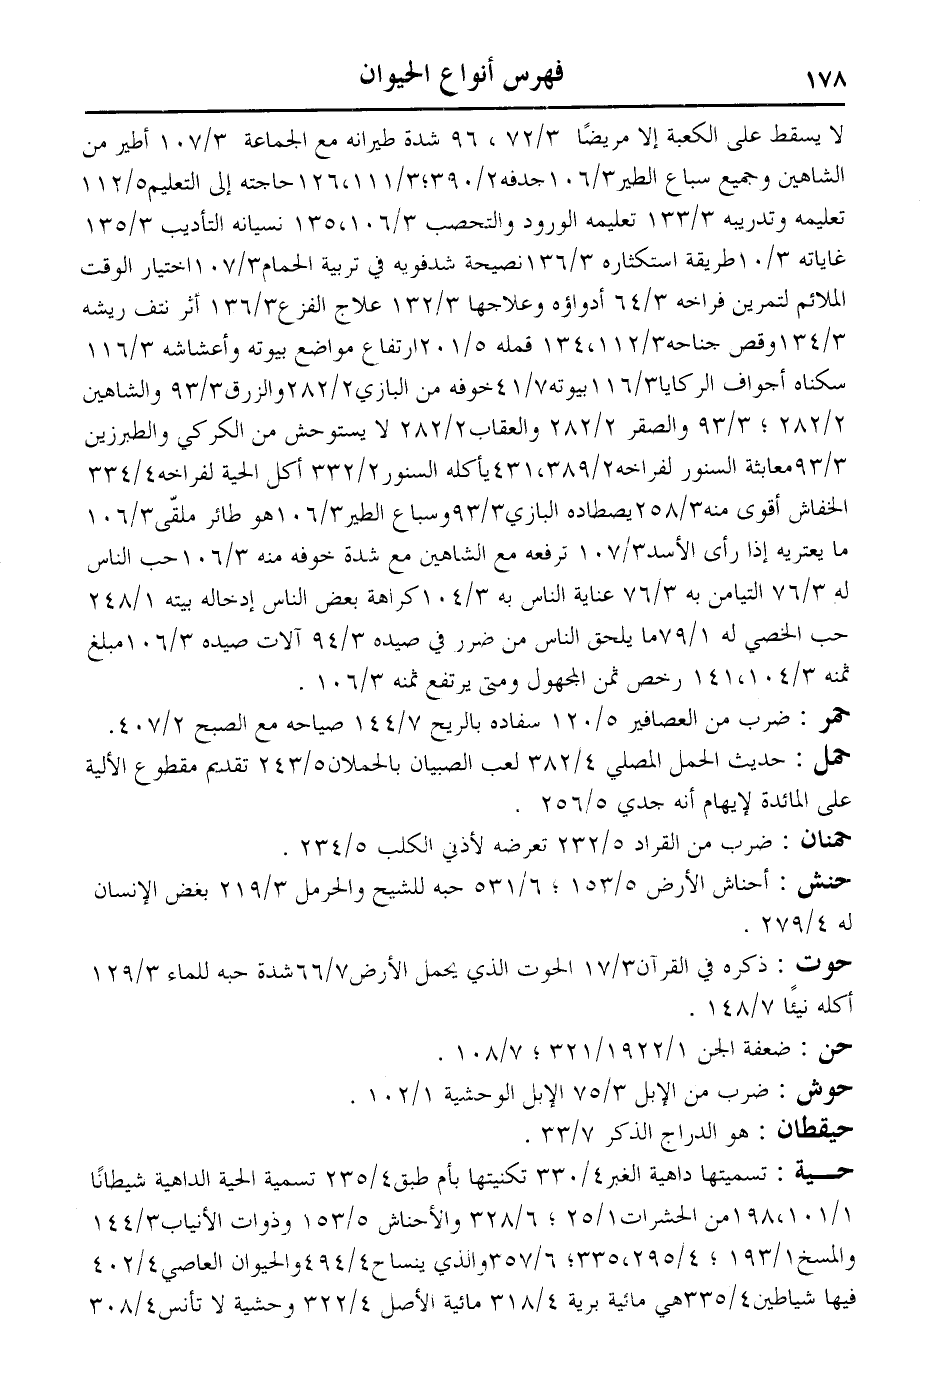 ١٧٨
فهرس أنواع الحيوان
لا يسقط على الكعبة إلا مريضًا ٧٢/٣ ، ٩٦ شدة طيرانه مع الجماعة ١٠٧/٣ أطير من
الشاهين وجميع سباع الطير١٠٦/٣جدفه٣٩٠/٢؛١٢٦،١١١/٣حاجته إلى التعليم١١٢/٥
تعليمه وتدريبه ١٣٣/٣ تعليمه الورود والتحصب ١٣٥،١٠٦/٣ نسيانه التأديب ١٣٥/٣
غاياته ١٠/٣طريقة استكثاره ١٣٦/٣نصيحة شدفويه في تربية الحمام١٠٧/٣اختيار الوقت
الملائم لتمرين فراخه ٦٤/٣ أدواؤه وعلاجها ١٣٢/٣ علاج الفزع١٣٦/٣ أثر نتف ريشه
١٣٤/٣وقص جناحه١٣٤،١١٢/٣ قمله ٢٠١/٥ارتفاع مواضع بيوته وأعشاشه ١١٦/٣
سكناه أجواف الركايا١١٦/٣بيوته٤١/٧خوفه من البازي٢٨٢/٢والزرق٩٣/٣ والشاهين
٢٨٢/٢ ؛ ٩٣/٣ والصقر ٢٨٢/٢ والعقاب٢٨٢/٢ لا يستوحش من الكركي والطبرزين
٩٣/٣معابثة السنور لفراخه٤٣١،٣٨٩/٢يأكله السنور٣٣٢/٢ أكل الحية لفراخه٣٣٤/٤
الخفاش أقوى منه٢٥٨/٣يصطاده البازي٩٣/٣وسباع الطير١٠٦/٣هو طائر ملقّى١٠٦/٣
ما يعتريه إذا رأى الأسد١٠٧/٣ ترفعه مع الشاهين مع شدة خوفه منه ١٠٦/٣حب الناس
له ٧٦/٣ التيامن به ٧٦/٣ عناية الناس به ١٠٤/٣كراهة بعض الناس إدخاله بيته ٢٤٨/١
حب الخصي له ٧٩/١ما يلحق الناس من ضرر في صيده ٩٤/٣ آلات صيده ١٠٦/٣مبلغ
ثمنه ١٤١،١٠٤/٣ رخص ثمن المجهول ومتى يرتفع ثمنه ١٠٦/٣ .
حمر : ضرب من العصافير ١٢٠/٥ سفاده بالريح ١٤٤/٧ صياحه مع الصبح ٤٠٧/٢.
حمل : حديث الحمل المصلي ٣٨٢/٤ لعب الصبيان بالحملان٢٤٣/٥ تقديم مقطوع الألية
على المائدة لإيهام أنه جدي ٢٥٦/٥ .
حمنان : ضرب من القراد ٢٣٢/٥ تعرضه لأذني الكلب ٢٣٤/٥ .
حنش : أحناش الأرض ١٥٣/٥ ؛ ٥٣١/٦ حبه للشيح والحرمل ٢١٩/٣ بغض الإنسان
له ٢٧٩/٤ .
حوت : ذكره في القرآن١٧/٣ الحوت الذي يحمل الأرض٦٦/٧شدة حبه للماء ١٢٩/٣
أكله نيئًا ١٤٨/٧ .
حن : ضعفة الجن ٣٢١/١٩٢٢/١ ؛ ١٠٨/٧ .
حوش : ضرب من الإبل ٧٥/٣ الإبل الوحشية ١٠٢/١ .
حيقطان : هو الدراج الذكر ٣٣/٧ .
حـــية : تسميتها داهية الغبر٣٣٠/٤ تكنيتها بأم طبق٢٣٥/٤ تسمية الحية الداهية شيطانًا
١٩٨،١٠١/١من الحشرات٢٥/١ ؛ ٣٢٨/٦ والأحناش ١٥٣/٥ وذوات الأنياب١٤٤/٣
والمسخ١٩٣/١ ؛ ٣٣٥،٢٩٥/٤؛ ٣٥٧/٦والذي ينساح٤٩٤/٤والحيوان العاصي٤٠٢/٤
فيها شياطين٣٣٥/٤هي مائية برية ٣١٨/٤ مائية الأصل ٣٢٢/٤ وحشية لا تأنس٣٠٨/٤